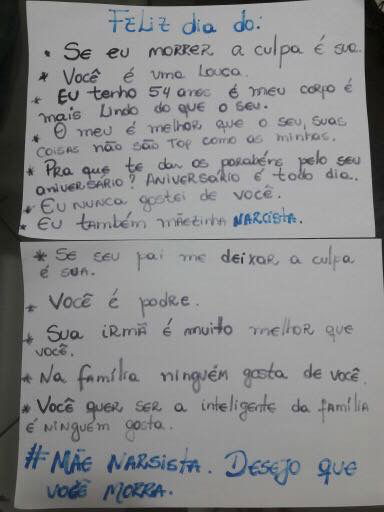 FELIZ dia do:
* SE EU MORRER a culpa é sua.
* Você é uma Louca.
* EU tenho 54 anos é meu corpo é
mais Lindo do que o seu.
* O meu é melhor que o seu, suas
coisas não são top como as minhas.
* Pra que te dar os parabéns pelo seu
aniversário? Aniversário é todo dia.
* Eu nunca gostei de você.
* Eu também mãezinha NARCISTA.
* Se seu pai me deixar a culpa
é sua.
* Você é podre.
* Sua irmã é muito melhor que
você.
* Na família ninguém gosta de você.
* Você quer ser a inteligente da família
é ninguém gosta.
# MÃE NARSISTA. DESEJO QUE
VOCÊ MORRA.